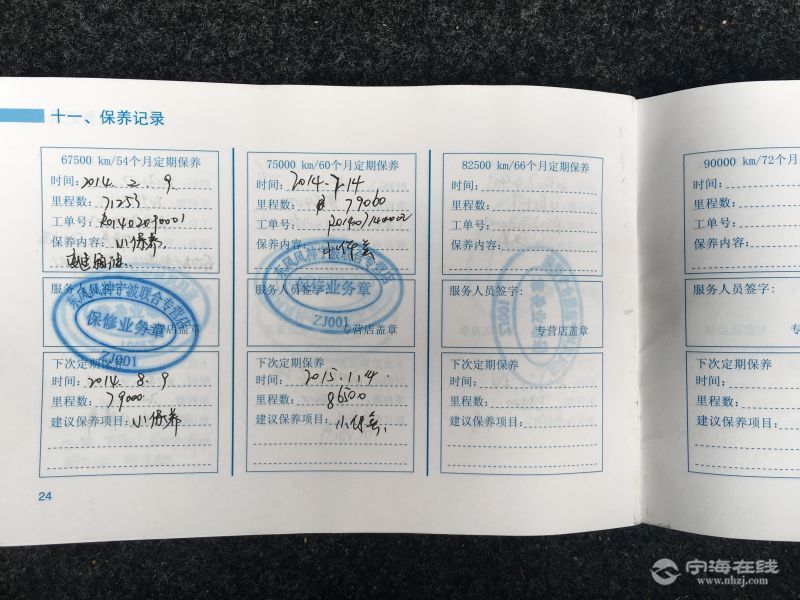 十一、保养记录
67500 km/54个月定期保养
时间: 2014. 2. 9.
里程数: 71253
工单号: R01402090001
保养内容: 小保养.
服务人员签字:
专营店盖章
东风风神宁波联合专营店
保修业务章
ZJ001
下次定期保养
时间: 2014. 8. 9
里程数: 79000
建议保养项目: 小保养
75000 km/60个月定期保养
时间: 2014.7.14
里程数: 79060
工单号:
保养内容: 小保养
服务人员签字:
专营店盖章
东风风神宁波联合专营店
保修业务章
ZJ001
下次定期保养
时间: 2015.1.14.
里程数: 86500
建议保养项目: 小保养.
82500 km/66个月定期保养
时间:
里程数:
工单号:
保养内容:
服务人员签字:
专营店盖章
下次定期保养
时间:
里程数:
建议保养项目:
90000 km/72个月
时间:
里程数:
工单号:
保养内容:
服务人员签字:
下次定期保养
时间:
里程数:
建议保养项目:
24
宁海在线
www.nhzj.com